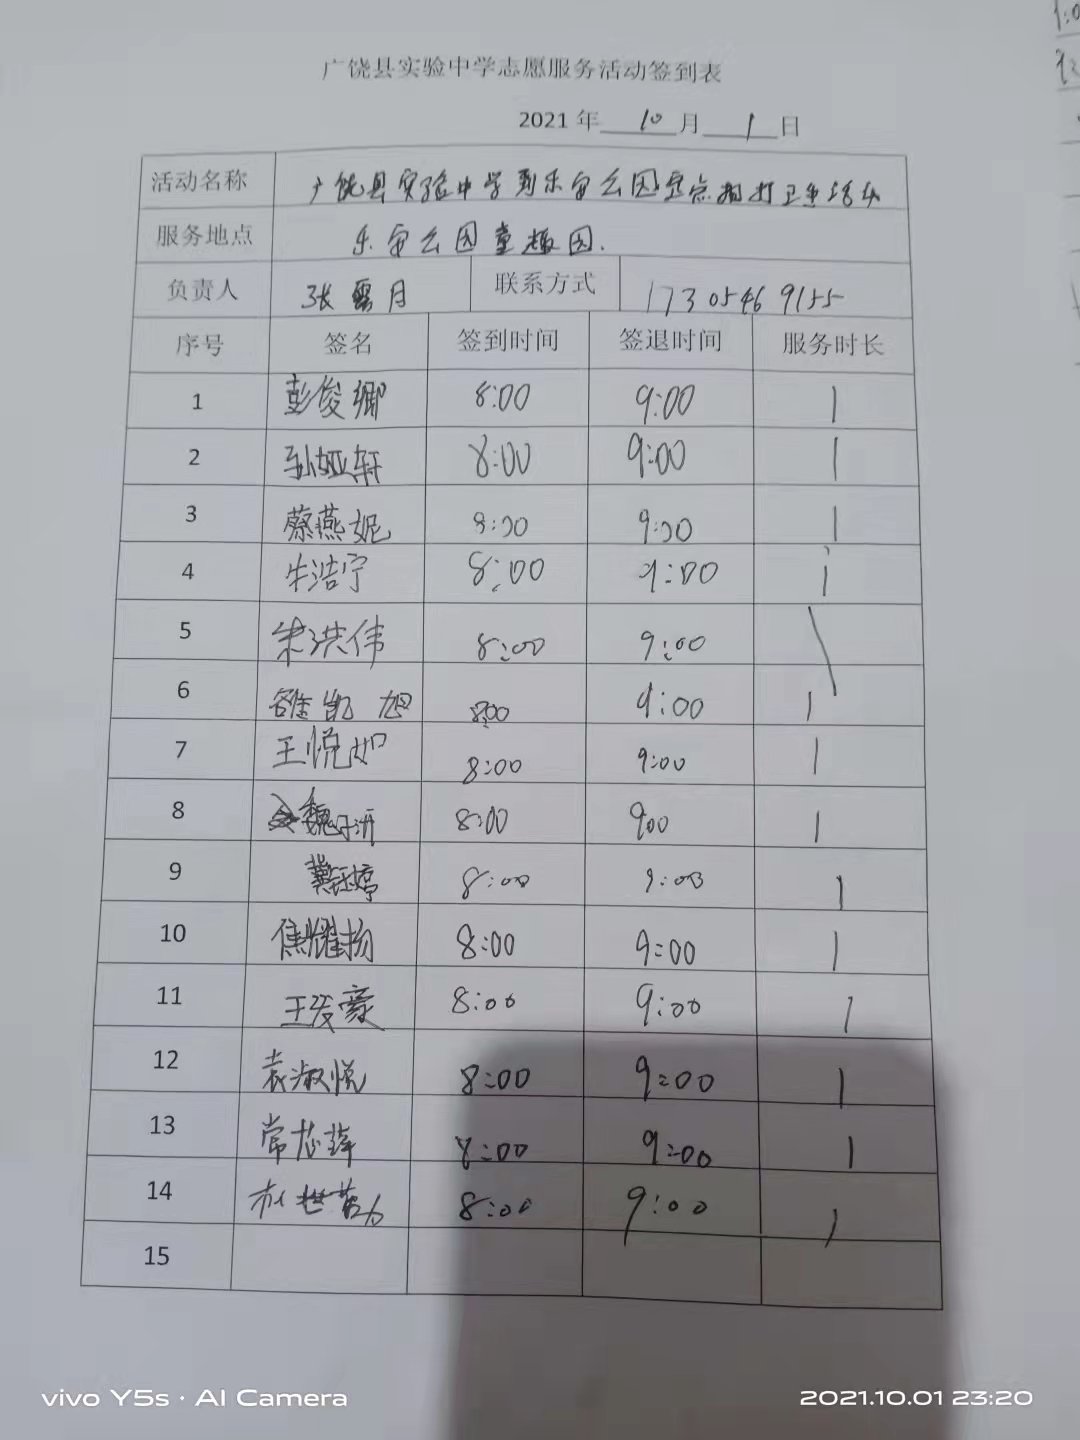 广饶县实验中学志愿服务活动签到表
2021 年 10 月 1 日
活动名称 广饶县实验中学到乐安公园 打卫生活动
服务地点 乐安公园童趣园.
负责人 张露月 联系方式 17305469155
序号 签名 签到时间 签退时间 服务时长
1 彭俊卿 8:00 9:00 1
2 孙娅轩 8:00 9:00 1
3 蔡燕妮 8:00 9:00 1
4 朱浩宁 8:00 9:00 1
5 朱洪伟 8:00 9:00 1
6 旭 8:00 9:00 1
7 王悦如 8:00 9:00 1
8 魏 8:00 900 1
9 8:00 9:00 1
10 焦耀扬 8:00 9:00 1
11 王俊豪 8:00 9:00 1
12 袁淑悦 8:00 9:00 1
13 常 8:00 9:00 1
14 8:00 9:00 1
15
vivo Y5s · AI Camera
2021.10.01 23:20